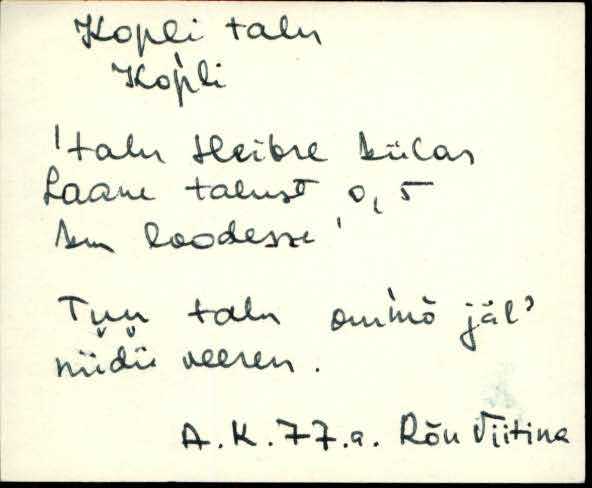 Kopli talu
Kop̀li
'talu Heibre külas
Laane talust 0,5
km loodesse'
Tuu talu oḿmõ jäl'
niidü veeren.
A.K.77.a. Rõu Viitina